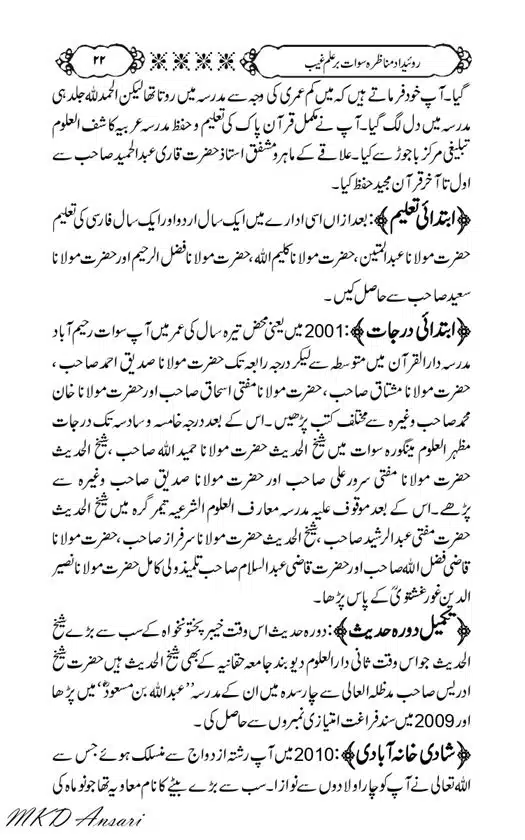 روئیداد مناظرہ سوات بر علم غیب
۲۲
گیا۔ آپ خود فرماتے ہیں کہ میں کم عمری کی وجہ سے مدرسہ میں روتا تھا لیکن الحمد للہ جلد ہی
مدرسہ میں دل لگ گیا۔ آپ نے مکمل قرآن پاک کی تعلیم و حفظ مدرسہ عربیہ کاشف العلوم
تبلیغی مرکز باجوڑ سے کیا۔ علاقے کے ماہر و مشفق استاذ حضرت قاری عبد الحمید صاحب سے
اول تا آخر قرآن مجید حفظ کیا۔
﴿ابتدائی تعلیم﴾: بعد ازاں اسی ادارے میں ایک سال اردو اور ایک سال فارسی کی تعلیم
حضرت مولانا عبد المتین، حضرت مولانا کلیم اللہ، حضرت مولانا فضل الرحیم اور حضرت مولانا
سعید صاحب سے حاصل کیں۔
﴿ابتدائی درجات﴾: 2001 میں یعنی محض تیرہ سال کی عمر میں آپ سوات رحیم آباد
مدرسہ دار القرآن میں متوسطہ سے لیکر درجہ رابعہ تک حضرت مولانا صدیق احمد صاحب،
حضرت مولانا مشتاق صاحب، حضرت مولانا مفتی اسحاق صاحب اور حضرت مولانا خان
محمد صاحب وغیرہ سے مختلف کتب پڑھیں۔ اس کے بعد درجہ خامسہ و سادسہ تک درجات
مظہر العلوم مینگورہ سوات میں شیخ الحدیث حضرت مولانا حمید اللہ صاحب، شیخ الحدیث
حضرت مولانا مفتی سرور علی صاحب اور حضرت مولانا صدیق صاحب وغیرہ سے
پڑھے۔ اس کے بعد موقوف علیہ مدرسہ معارف العلوم الشرعیہ تیمرگرہ میں شیخ الحدیث
حضرت مفتی عبد الرشید صاحب، شیخ الحدیث حضرت مولانا سرفراز صاحب، حضرت مولانا
قاضی فضل اللہ صاحب اور حضرت قاضی عبد السلام صاحب تلمیذ ولی کامل حضرت مولانا نصیر
الدین غورغشتویؒ کے پاس پڑھا۔
﴿تکمیل دورہ حدیث﴾: دورہ حدیث اس وقت خیبر پختونخواہ کے سب سے بڑے شیخ
الحدیث جو اس وقت ثانی دار العلوم دیوبند جامعہ حقانیہ کے بھی شیخ الحدیث ہیں حضرت شیخ
ادریس صاحب مدظلہ العالی سے چارسدہ میں ان کے مدرسہ ’’عبد اللہ بن مسعودؓ‘‘ میں پڑھا
اور 2009 میں سند فراغت امتیازی نمبروں سے حاصل کی۔
﴿شادی خانہ آبادی﴾: 2010 میں آپ رشتہ ازدواج سے منسلک ہوئے جس سے
اللہ تعالی نے آپ کو چار اولادوں سے نوازا۔ سب سے بڑے بیٹے کا نام معاویہ تھا جو نو ماہ کی
MKD Ansari